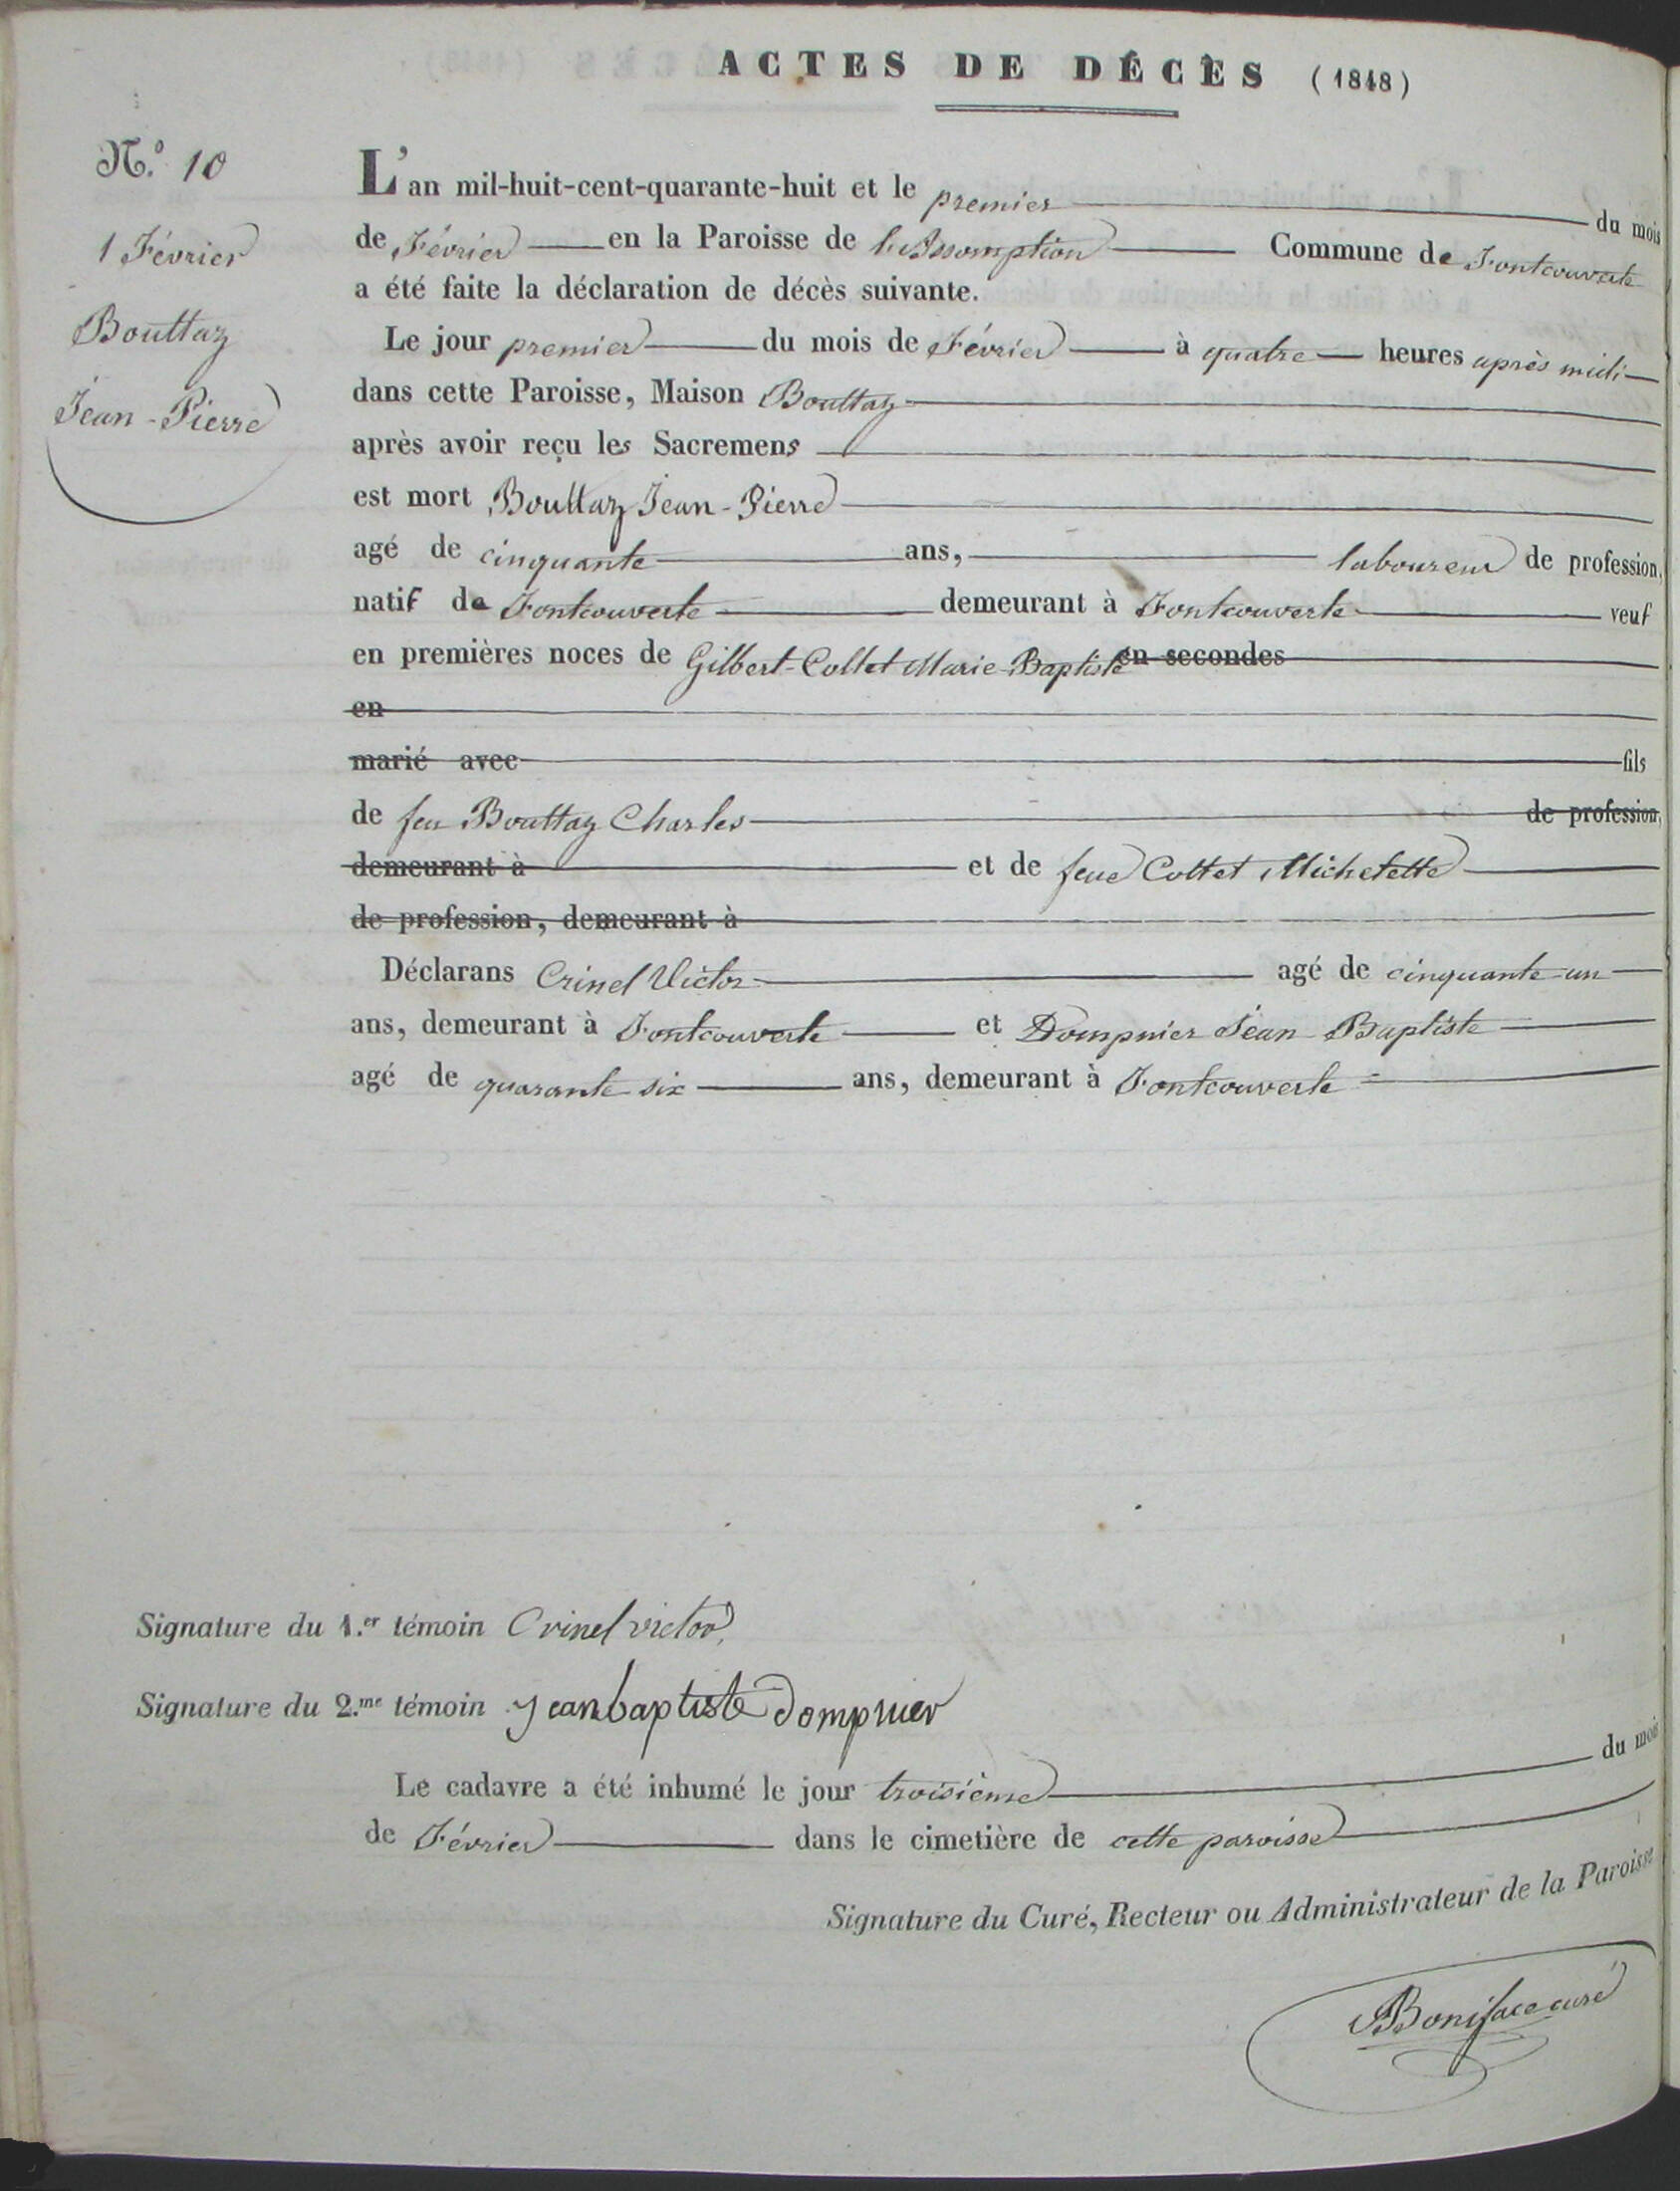 ACTES DE DÉCÈS (1848)
N.º 10
1 Février
Bouttaz
Jean-Pierre
L'an mil-huit-cent-quarante-huit et le premier du mois
de Février en la Paroisse de l'Assomption Commune de Fontcouverte
a été faite la déclaration de décès suivante.
Le jour premier du mois de Février à quatre heures après midi
dans cette Paroisse, Maison Bouttaz
après avoir reçu les Sacremens
est mort Bouttaz Jean-Pierre
agé de cinquante ans, laboureur de profession,
natif de Fontcouverte demeurant à Fontcouverte veuf
en premières noces de Gilbert-Collet Marie-Baptiste en secondes
en
marié avec fils
de feu Bouttaz Charles de profession,
demeurant à et de feue Collet Michelette
de profession, demeurant à
Déclarans Crinel Victor agé de cinquante-un
ans, demeurant à Fontcouverte et Dompnier Jean Baptiste
agé de quarante-six ans, demeurant à Fontcouverte
Signature du 1.er témoin Crinel victor,
Signature du 2.me témoin jeanbaptiste dompnier
Le cadavre a été inhumé le jour troisième du mois
de Février dans le cimetière de cette paroisse
Signature du Curé, Recteur ou Administrateur de la Paroisse
Boniface curé